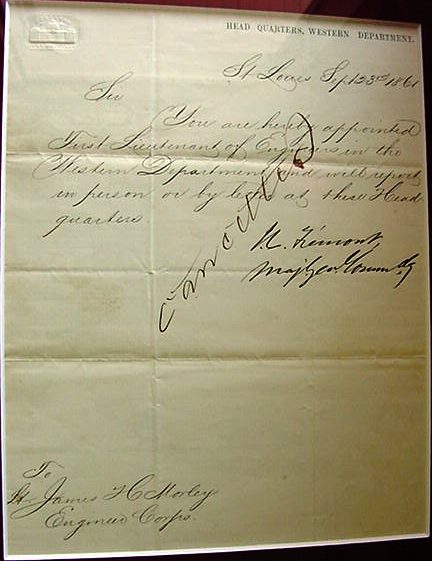 HEAD QUARTERS, WESTERN DEPARTMENT.
St Louis Sept 23rd 1861
Sir
You are hereby appointed
First Lieutenant of Engineers in the
Western Department and will report
in person or by letter at these Head-
quarters
J.C. Frémont,
Maj Gen Commdg
Cancelled
To
Lt James H C Morley
Engineer Corps.